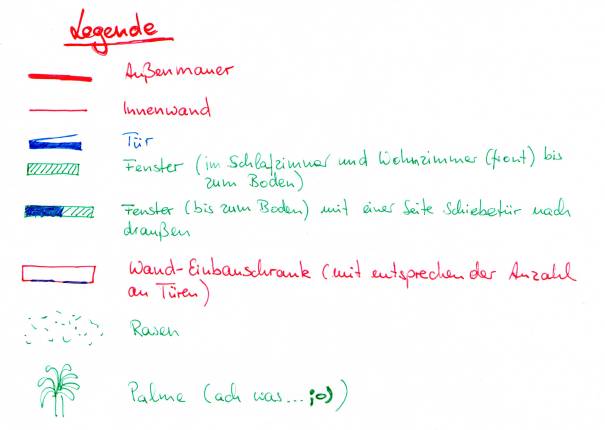 Legende
Außenmauer
Innenwand
Tür
Fenster (im Schlafzimmer und Wohnzimmer (front) bis
zum Boden)
Fenster (bis zum Boden) mit einer Seite Schiebetür nach
draußen
Wand-Einbauschrank (mit entsprechender Anzahl
an Türen)
Rasen
Palme (ach was... ;o))